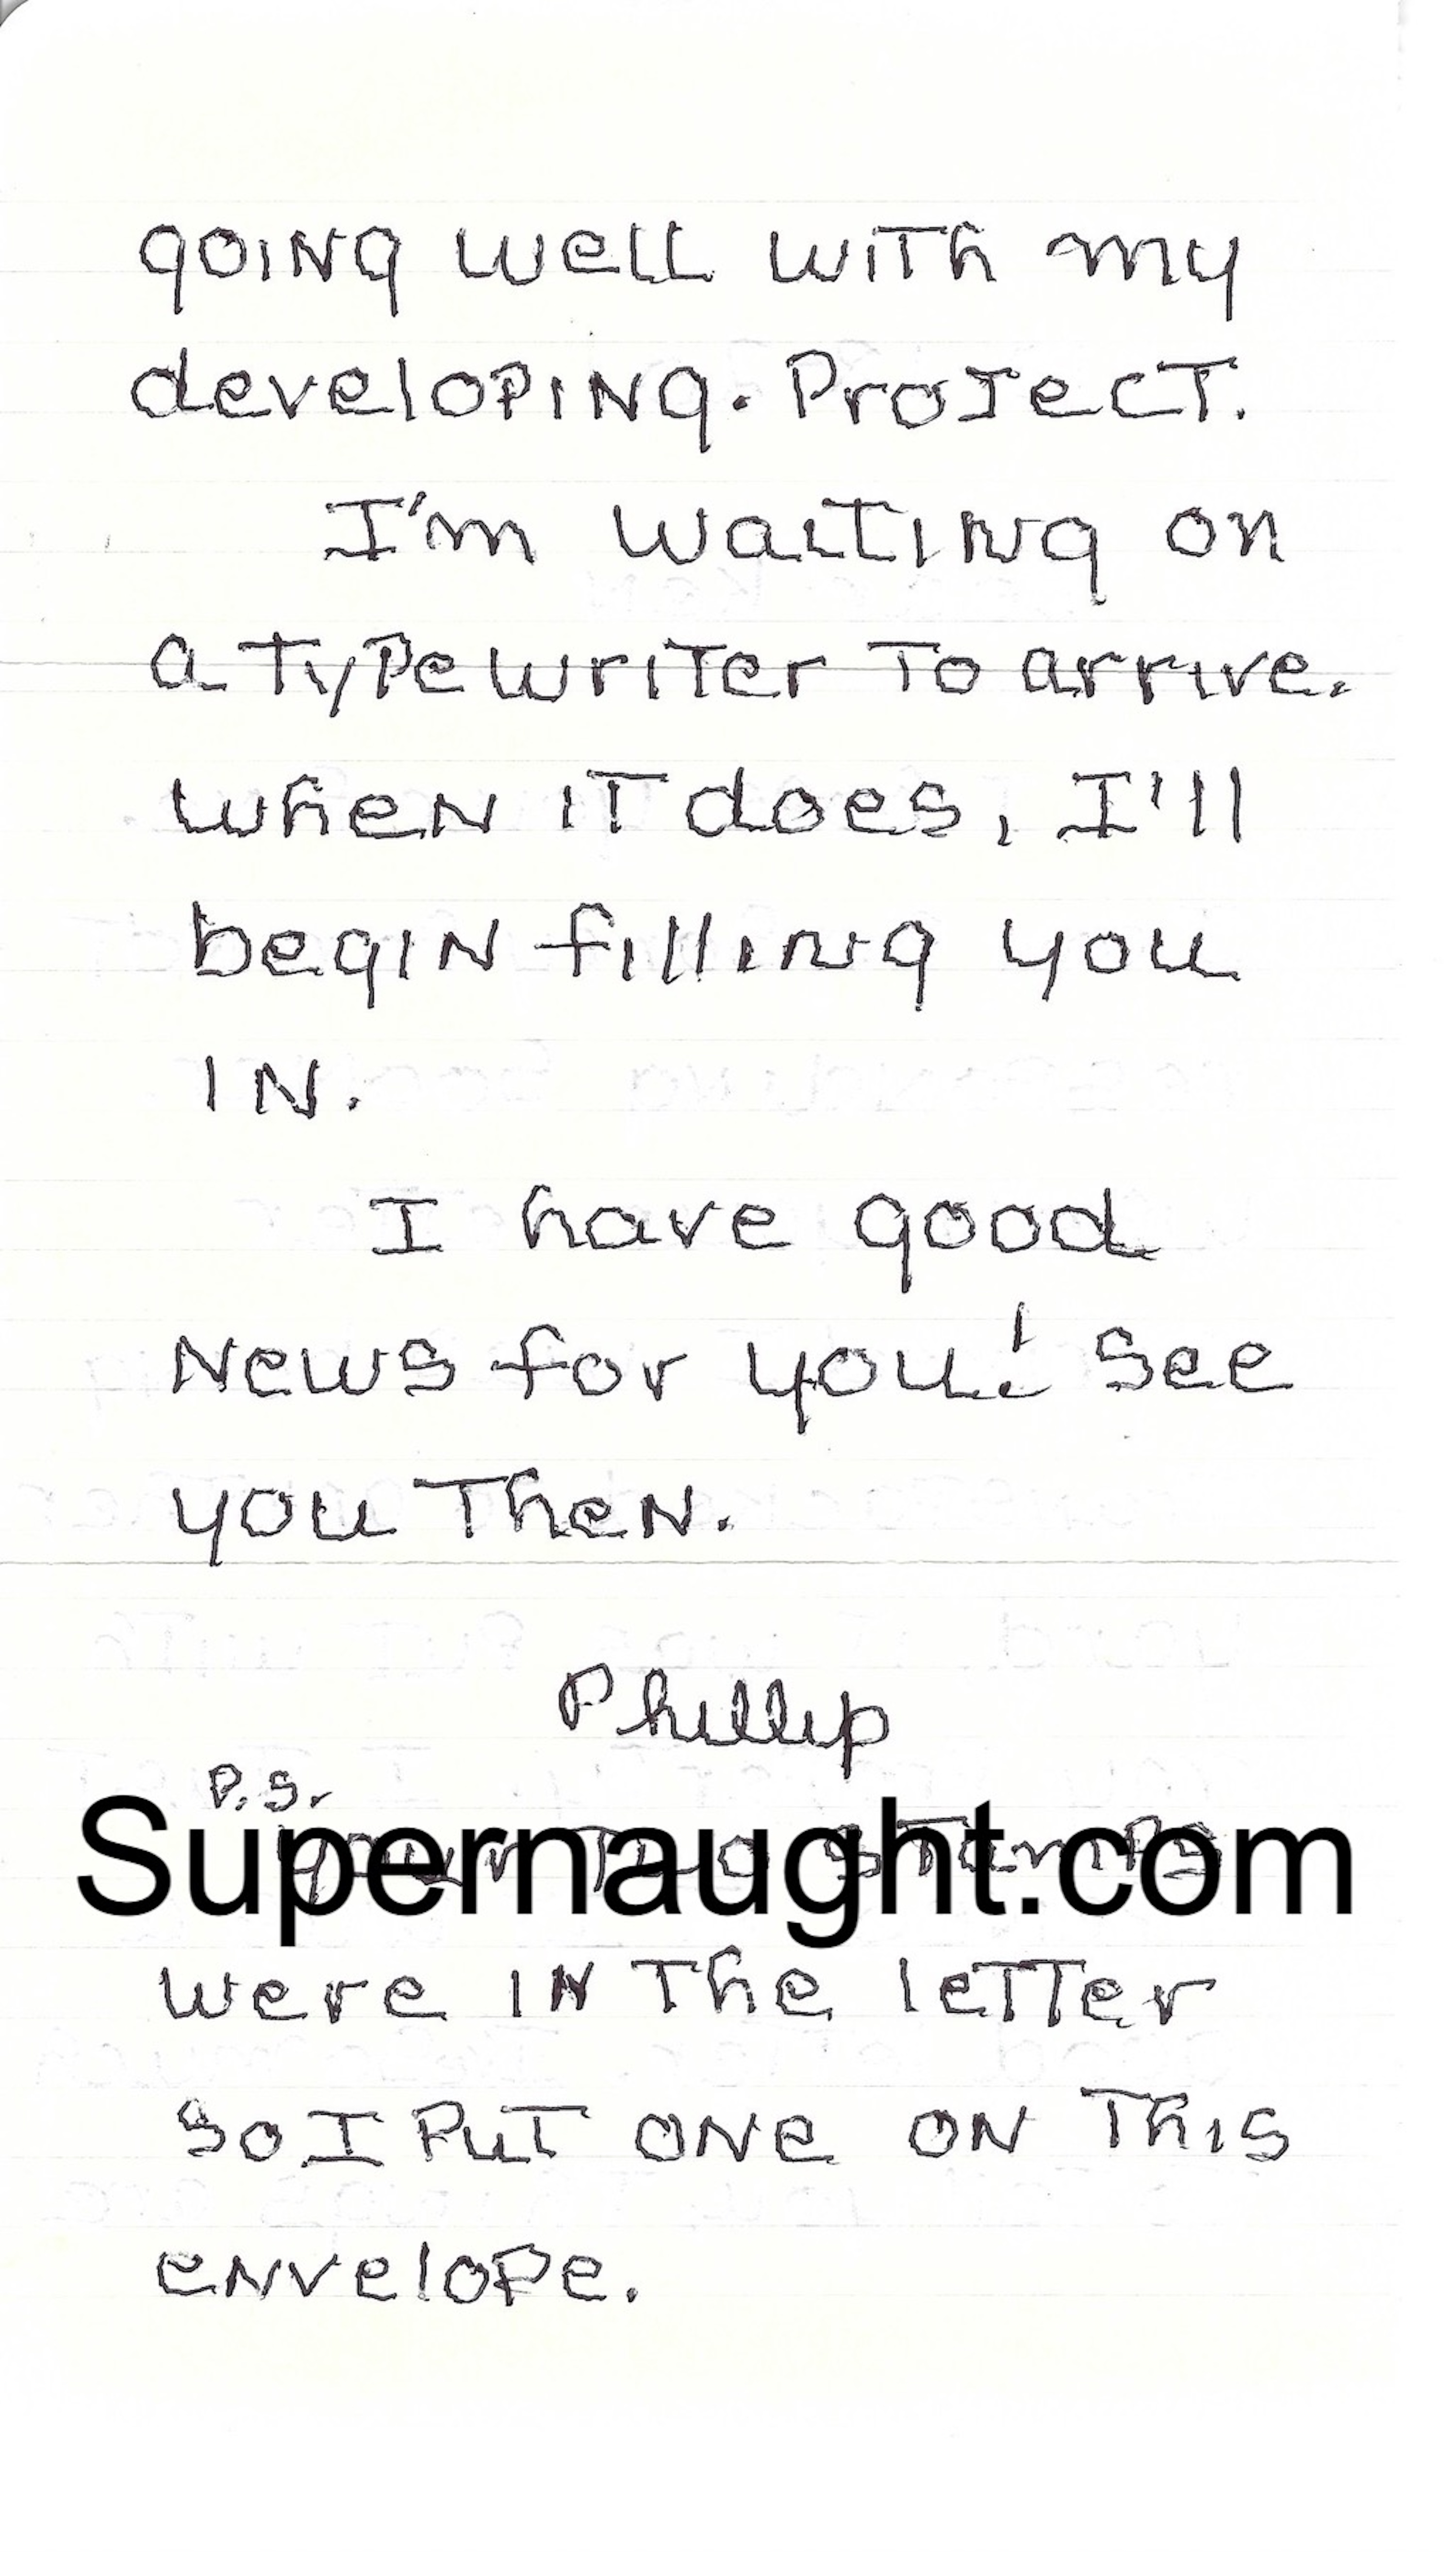 going well with my
developing. Project.
I'm waiting on
a typewriter to arrive.
when it does, I'll
begin filling you
in.
I have good
news for you! See
you then.
Phillip
P.S.
Supernaught.com
your two stamps
were in the letter
so I put one on this
envelope.